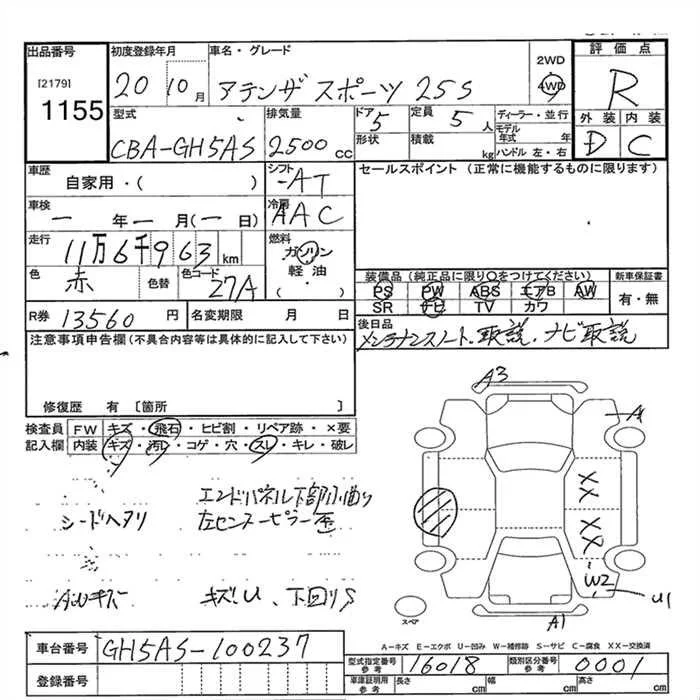 出品番号
[2179]
1155
初度登録年月
20 10月
車名・グレード
アテンザスポーツ 25S
2WD
4WD
評価点
R
外装 内装
D C
型式
CBA-GH5AS
排気量
2500cc
ドア 5
形状
定員 5人
積載 kg
ディーラー・並行
モデル年式 年
ハンドル 左・右
車歴
自家用・( )
シフト
-AT
セールスポイント (正常に機能するものに限ります)
車検
一年一月(一日)
冷房
AAC
走行
11万6千963km
燃料
ガソリン
軽油
( )
色
赤
色替
色コード
27A
装備品(純正品に限り○をつけてください)
PS PW ABS エアB AW
SR ナビ TV カワ
新車保証書
有・無
R券 13560円
名変期限 月 日
後日品
メンテナンスノート、取説、ナビ取説
注意事項申告欄(不具合内容等は具体的に記入して下さい)
修復歴 有 [箇所 ]
検査員記入欄
FW キズ・飛石・ヒビ割・リペア跡・×要
内装 キズ・汚レ・コゲ・穴・スレ・キレ・破レ
シートヘタリ
エンドパネル下部小曲り
左センターピラー歪
AWキズ
キズ・U、下回りS
A3
A
XX
XX
W2
U1
A1
スペア
車台番号
GH5AS-100237
登録番号
A-キズ E-エクボ U-凹み W-補修跡 S-サビ C-腐食 XX-交換済
型式指定番号 参考 16018
類別区分番号 参考 0001
車庫証明用 参考 長さ cm 幅 cm 高さ cm